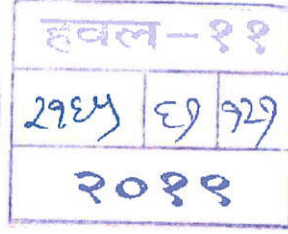 हवल - ११
२१६५ ६७ १२७
२०१९